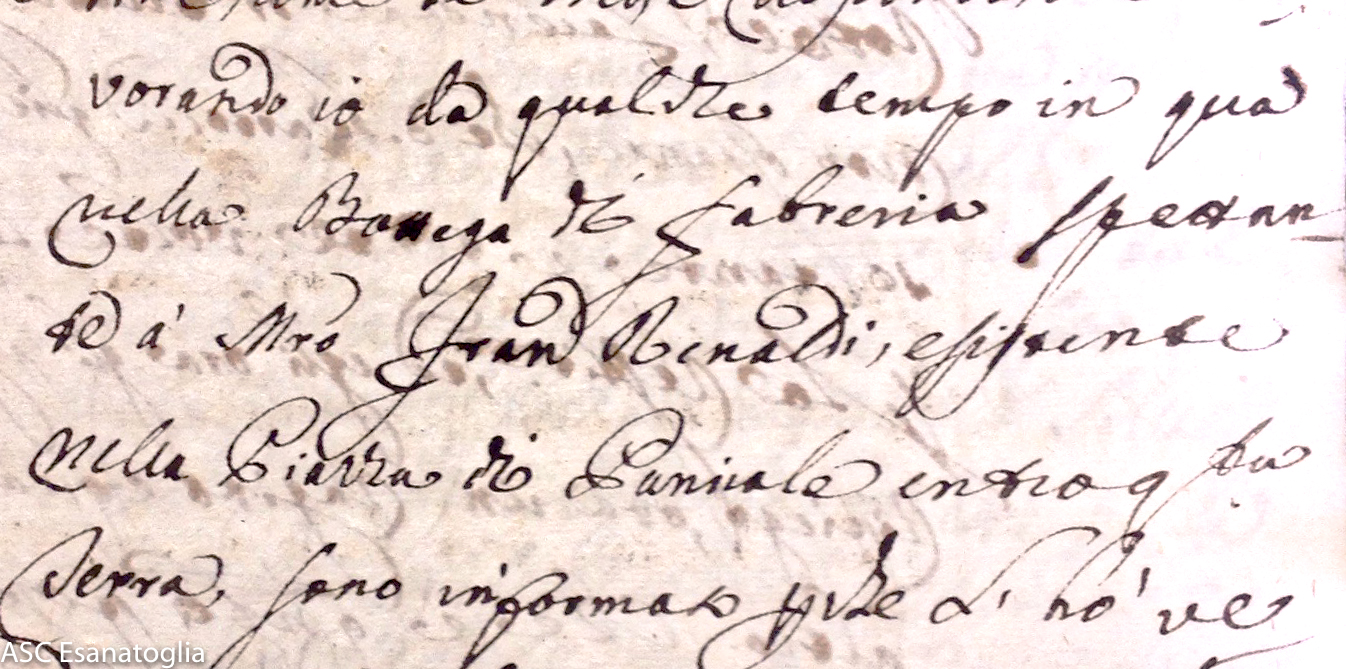 vorando io da qualche tempo in qua
nella Bottega di fabreria spettan-
te à Mro Fran Rinaldi, esistente
nella Piazza di Panicale entro q sta
Terra, sono informato pche L' hò ve
ASC Esanatoglia